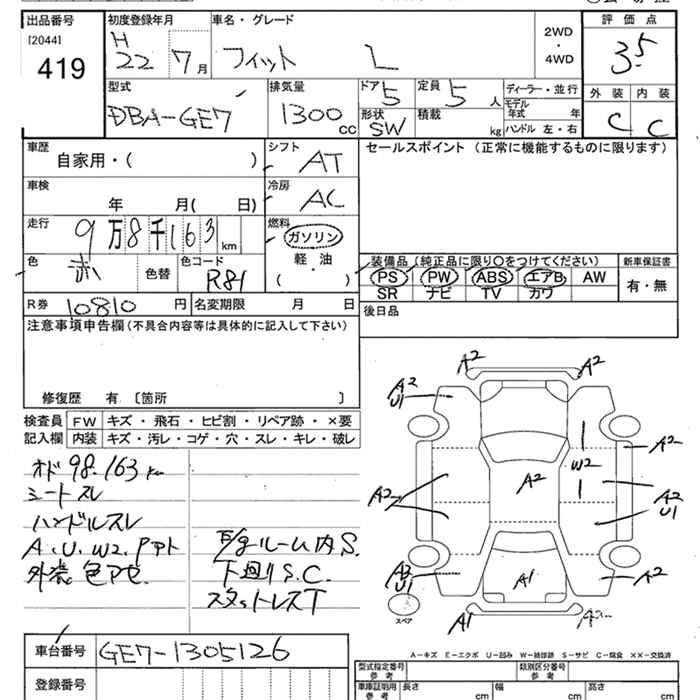 出品番号 初度登録年月 車名・グレード 2WD ・ 4WD 評価点
[2044] H
419 22 7月 フィット L 3.5
型式 排気量 ドア 定員 ディーラー・並行 外装 内装
DBA-GE7 1300cc 5 5人 モデル年式 年 C C
形状 積載 kg ハンドル 左・右
SW
車歴 シフト セールスポイント (正常に機能するものに限ります)
自家用・( ) AT
車検 冷房
年 月( 日) AC
走行 燃料
9万8千163km ガソリン
色 色替 色コード 軽・油 装備品 (純正品に限り〇をつけてください) 新車保証書
赤 R81 ( ) PS PW ABS エアB AW 有・無
SR ナビ TV カワ
R券 10810円 名変期限 月 日 後日品
注意事項申告欄(不具合内容等は具体的に記入して下さい)
修復歴 有 〔箇所 〕
検査員 FW キズ・飛石・ヒビ割・リペア跡・×要
記入欄 内装 キズ・汚レ・コゲ・穴・スレ・キレ・破レ
オド 98.163km
シートスレ
ハンドルスレ
A.U.W2.Pアト
外装色アセ.
E/gルーム内S.
下廻りS.C.
スタットレスT
A2 A2
A2 U1
A2
W2
A2 A2 A2 U1
A2 U1 A1 A2
スペア A1 A2
A-キズ E-エクボ U-凹み W-補修跡 S-サビ C-腐食 ××-交換済
車台番号 GE7-1305126
型式指定番号 参考 類別区分番号 参考
登録番号 車庫証明用 参考 長さ cm 幅 cm 高さ cm